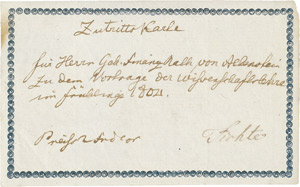 Zutritts Karte
für Herrn Geh. Finanz Rath von Altenstein
zu dem Vortrage der Wissenschaftslehre
im Frühlinge 1804.
Fichte